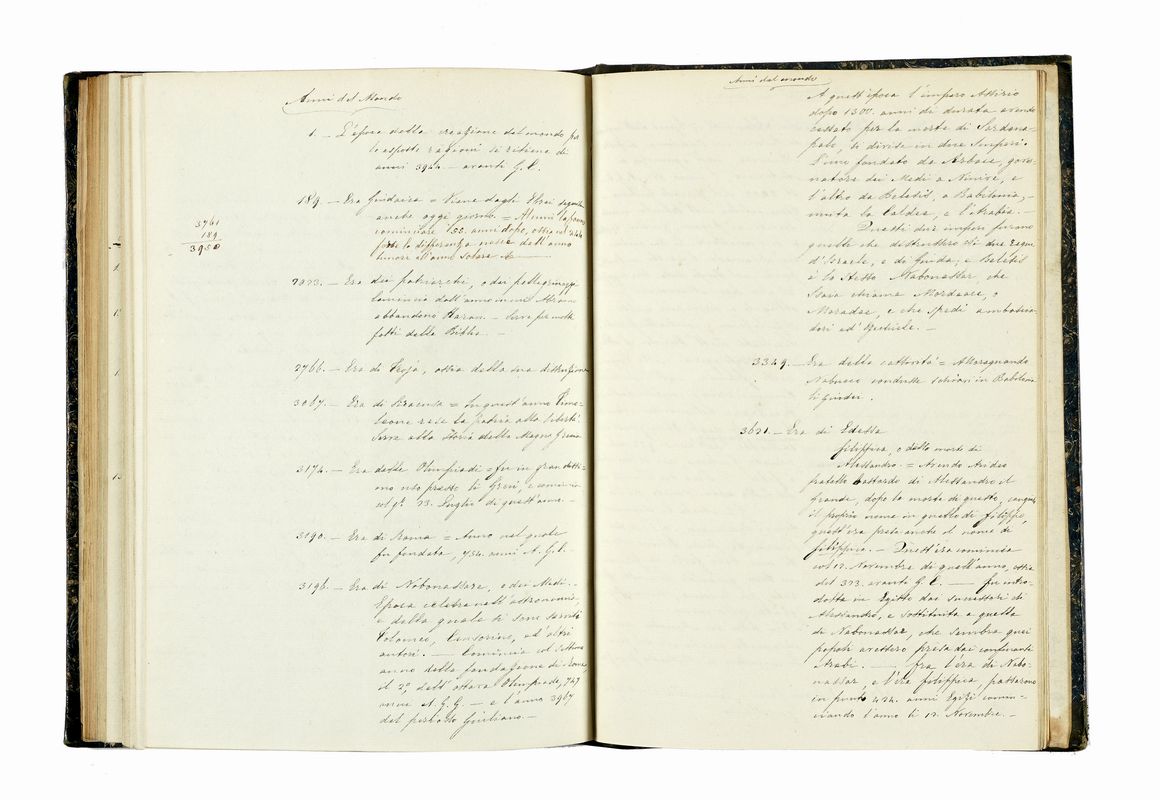 Anni del Mondo
1. — L'epoca della creazione del mondo per
le esposte ragioni si ritiene di
anni 3944 — avanti G. C.
189. — Era Giudaica = Viene dagli Ebrei seguita
anche oggi giorno. = Alcuni la fanno
cominciare 150 anni dopo, ossia nel
forse la differenza nasce dall'anno
lunare all'anno Solare
3761
189
3950
— Era dei patriarchi, o dei pellegrinaggi
Comincia dall'anno in cui Abramo
abbandonò Haran. — Serve per molti
fatti della Bibbia —
2766. — Era di Troja, ossia della sua distruzione
3067. — Era di Siracusa = In quest'anno Timo-
leone rese la patria alla libertà.
Serve alla Storia della Magna Grecia
3174. — Era delle Olimpiadi = fu in grandissi-
mo uso presso li Greci, e comincia
col g.º 23. Luglio di quest'anno. —
3190. — Era di Roma = Anno nel quale
fu fondata, 754. anni A. G. C. —
3196. — Era di Nabonassare, o dei Medi. —
Epoca celebre nell'astronomia,
e della quale si sono serviti
Tolomeo, Censorino, ed altri
autori. — Comincia col settimo
anno della fondazione di Roma
il 2º dell'ottava Olimpiade, 747
anni A. G. C. — e l'anno 3967
del periodo Giuliano. —
Anni del mondo
A quest'epoca l'impero Assirio
dopo 1300. anni di durata avendo
cessato per la morte di Sardana-
palo, si divise in due Imperi.
L'uno fondato da Arbace, gover-
natore dei Medi a Ninive, e
l'altro da Belesis, a Babilonia,
unita la Caldea, e l'Arabia. —
Questi due imperi furono
quelli che distrussero li due Regni
d'Israele, e di Giuda; e Belesis
è lo stesso Nabonassar che
Isaia chiama Merdacce, o
Moradac, e che spedì ambascia-
dori ad Ezechiele. —
3349. — Era della cattività = Allorquando
Nabucco condusse schiavi in Babilonia
li Giudei.
3621. — Era di Edessa
filippica, o della morte di
Alessandro. = Avendo Arideo
fratello bastardo di Alessandro il
Grande, dopo la morte di questo, cangiò
il proprio nome in quello di filippo,
quest'era prese anche il nome di
filippica. — Quest'era comincia
col 12. Novembre di quell'anno, ossia
del 323. avanti G. C. — fu intro-
dotta in Egitto dai successori di
Alessandro, e sostituita a quella
di Nabonassar, che sembra quei
popoli avessero presa dai confinanti
Arabi. — fra l'era di Nabo-
nassar e l'era filippica, passarono
in punto 424. anni Egizi comin-
ciando l'anno li 12. Novembre. —